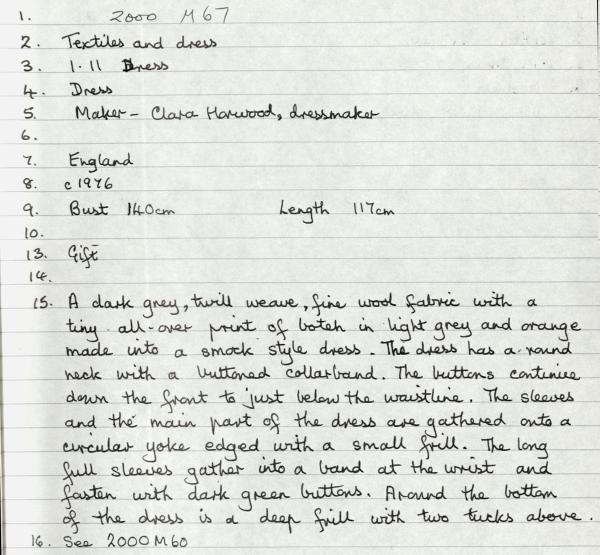 1. 2000 M67
2. Textiles and dress
3. 1.11 Dress
4. Dress
5. Maker - Clara Harwood, dressmaker
6.
7. England
8. c1976
9. Bust 140cm Length 117cm
10.
13. Gift
14.
15. A dark grey, twill weave, fine wool fabric with a
tiny all-over print of boteh in light grey and orange
made into a smock style dress. The dress has a round
neck with a buttoned collarband. The buttons continue
down the front to just below the waistline. The sleeves
and the main part of the dress are gathered onto a
circular yoke edged with a small frill. The long
full sleeves gather into a band at the wrist and
fasten with dark green buttons. Around the bottom
of the dress is a deep frill with two tucks above.
16. See 2000 M60